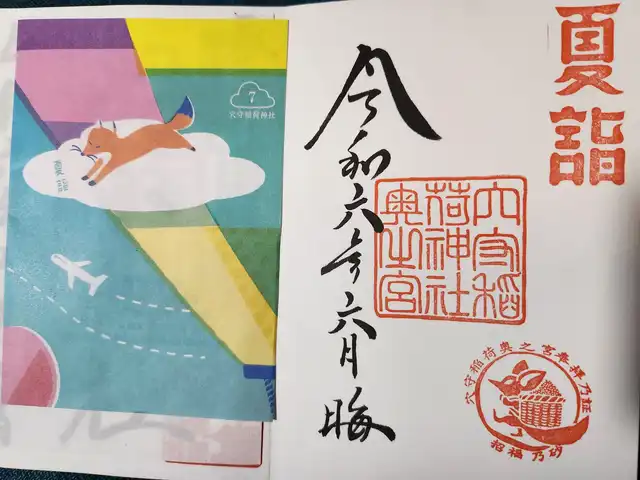 7
穴守稲荷神社
夏詣
令和六年六月晦
穴守稲
荷神社
奥之宮
穴守稲荷奥之宮奉拝乃証
招福乃砂